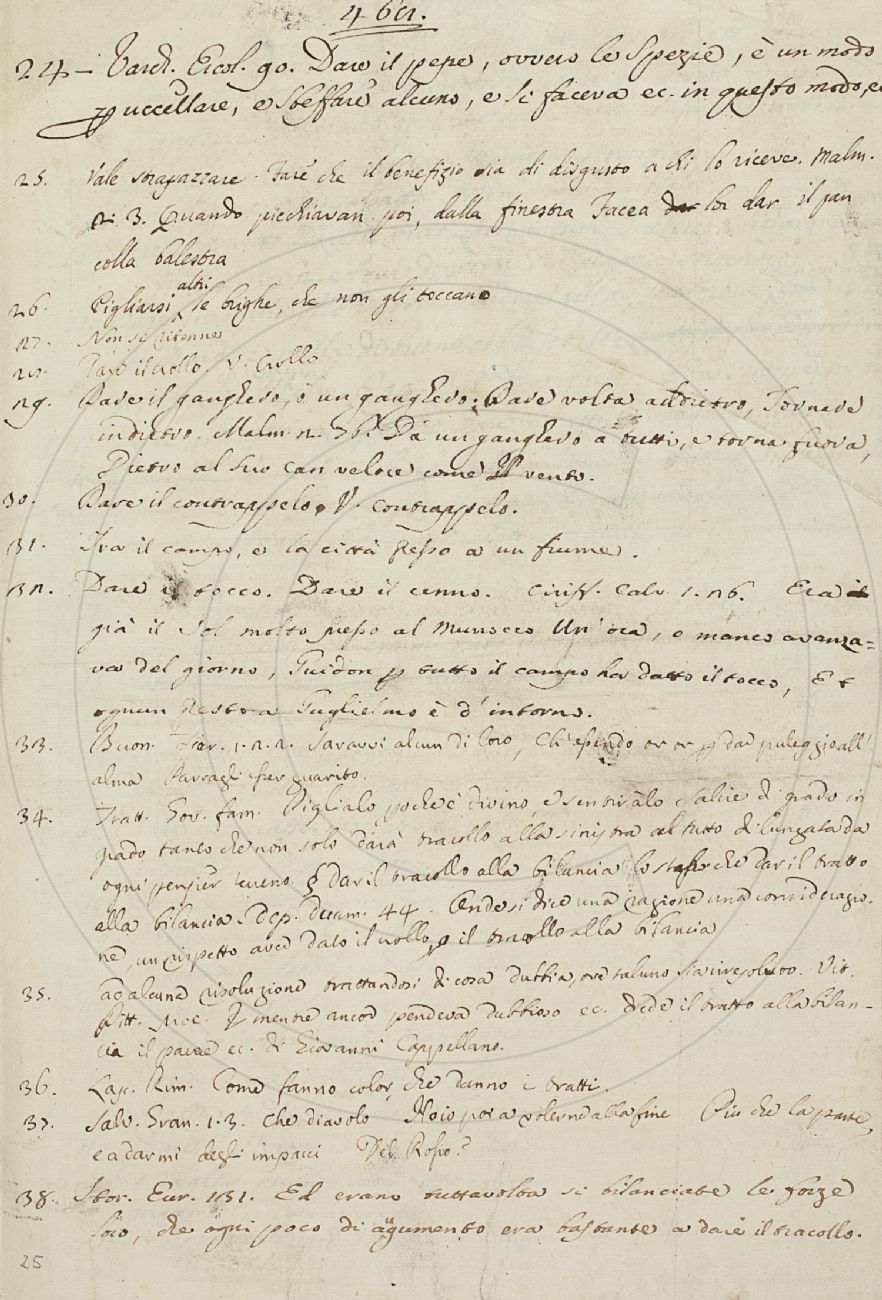 4 bis.
24 – Varch. Ercol. 90. Dare il pepe, ovvero le Spezie, è un modo
p uccellare, e sbeffare alcuno, e si faceva ec. in questo modo, ec
25. Vale strapazzare. Fare che il benefizio sia di disgusto a chi lo riceve. Malm.
2. 3. Quando picchiavan poi, dalla finestra Facea lor dar il pan
colla balestra
26. Pigliarsi altri le brighe, che non gli toccano
27. Non si ritenne
28. Dare il crollo. V. Crollo
29. Dare il ganghero, o un ganghero. Dare volta addietro, Tornare
indietro. Malm. 2. 76. Dà un ganghero a tutti, e torna fuora,
Dietro al suo can veloce come il vento.
30. Dare il contrappelo. V. Contrappelo.
31. Tra il campo, e la città presso a un fiume.
32. Dare il tocco. Dare il cenno. Ciriff. Calv. 1. 26. Era
già il Sol molto presso al Murocco Un' ora, o manco avanza-
va del giorno, Guidon p tutto il campo ha datto il tocco, Et
ognun Guglielmo è d'intorno.
33. Buon. Fier. 1. 2. 2. Saravvi alcun di loro, Ch' essendo or or p dar puleggio all'
alma Parragli esser guarito.
34. Tratt. Gov. fam. Piglialo, poche è divino, e sentiralo salire di grado in
grado tanto che non solo darà tracollo alla sinistra al tutto di lungata da
ogni pensier terreno. § Dar il tracollo alla bilancia lo stesso che dar il tratto
alla bilancia. Dep. Decam. 44. Onde si dice una ragione una considerazio-
ne, un rispetto aver dato il crollo, o il tracollo alla bilancia
35. ad alcuna risoluzione trattandosi di cosa dubbia, ove taluno sia irresoluto. Vit.
Pitt. mentre ancor pendeva dubbioso ec. diede il tratto alla bilan-
cia il parere ec. di Giovanni Cappellano.
36. Lasc. Rim. Come fanno color, che danno i tratti.
37. Salv. Gran. 1. 3. Che diavolo Ho io poi a volerne alla fine Più che la parte,
e a darmi degli impacci Del Rosso?
38. Stor. Eur. 131. Ed erano tuttavolta sì bilanciate le forze
loro, che ogni poco di augumento era bastante a dare il tracollo.
25